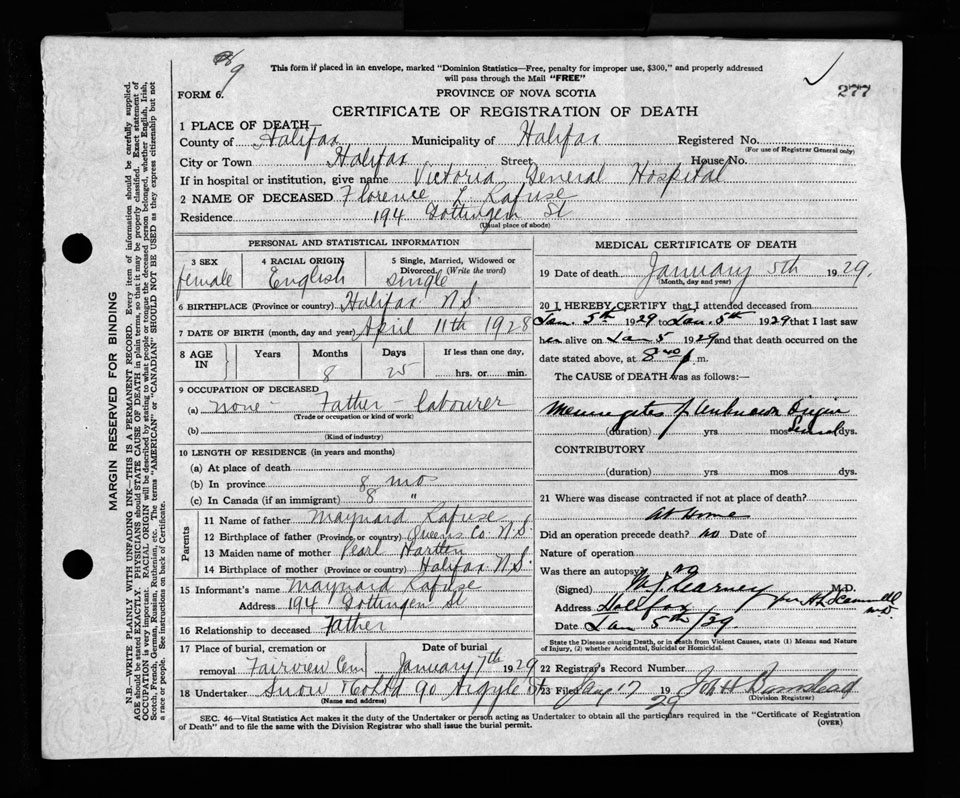 9
This form if placed in an envelope, marked "Dominion Statistics—Free, penalty for improper use, $300," and properly addressed
will pass through the Mail "FREE"
277
FORM 6.
PROVINCE OF NOVA SCOTIA
CERTIFICATE OF REGISTRATION OF DEATH
1 PLACE OF DEATH—
County of Halifax Municipality of Halifax Registered No.
(For use of Registrar General only)
City or Town Halifax Street House No.
If in hospital or institution, give name Victoria General Hospital
2 NAME OF DECEASED Florence L Rafuse
Residence 194 Gottingen St
(Usual place of abode)
PERSONAL AND STATISTICAL INFORMATION
3 SEX 4 RACIAL ORIGIN 5 Single, Married, Widowed or
Divorced. (Write the word)
female English single
6 BIRTHPLACE (Province or country) Halifax N.S.
7 DATE OF BIRTH (month, day and year) April 11th 1928
8 AGE IN Years Months Days If less than one day,
8 25 hrs. or min.
9 OCCUPATION OF DECEASED
(a) none - Father - labourer
(Trade or occupation or kind of work)
(b)
(Kind of industry)
10 LENGTH OF RESIDENCE (in years and months)
(a) At place of death
(b) In province 8 mo
(c) In Canada (if an immigrant) 8 "
Parents
11 Name of father Maynard Rafuse
12 Birthplace of father (Province or country) Queens Co. N.S.
13 Maiden name of mother Pearl
14 Birthplace of mother (Province or country) Halifax N.S.
15 Informant's name Maynard Rafuse
Address 194 Gottingen St
16 Relationship to deceased Father
17 Place of burial, cremation or Date of burial
removal Fairview Cem January 7th 1929
18 Undertaker Snow & Co Ltd 90 Argyle St
(Name and address)
MEDICAL CERTIFICATE OF DEATH
19 Date of death January 5th 1929.
(Month, day and year)
20 I HEREBY CERTIFY that I attended deceased from
Jan 5th 1929 to Jan. 5th 1929 that I last saw
her alive on Jan 5 1929 and that death occurred on the
date stated above, at 8 p. m.
The CAUSE of DEATH was as follows:—
of unknown origin
(duration) yrs mos Several dys.
CONTRIBUTORY
(duration) yrs. mos. dys.
21 Where was disease contracted if not at place of death?
at Home
Did an operation precede death? no Date of
Nature of operation
Was there an autopsy? no
(Signed) Kearney M.D.
Address Halifax
Date Jan 5th/29.
State the Disease causing Death, or in death from Violent Causes, state (1) Means and Nature
of Injury, (2) whether Accidental, Suicidal or Homicidal.
22 Registrar's Record Number
23 Filed 17 1929
(Division Registrar)
SEC. 46—Vital Statistics Act makes it the duty of the Undertaker or person acting as Undertaker to obtain all the particulars required in the "Certificate of Registration
of Death" and to file the same with the Division Registrar who shall issue the burial permit. (OVER)
MARGIN RESERVED FOR BINDING
N.B.—WRITE PLAINLY WITH UNFADING INK—THIS IS A PERMANENT RECORD. Every item of information should be carefully supplied.
AGE should be stated EXACTLY. PHYSICIANS should STATE CAUSE OF DEATH in plain terms, so that it may be properly classified. Exact statement of
OCCUPATION is very important. RACIAL ORIGIN will be described by stating to what people or tongue the deceased person belonged, whether English, Irish,
Scotch, French, German, Russian, Ruthenian, etc. The terms "AMERICAN" or "CANADIAN" SHOULD NOT BE USED as they express citizenship but not
a race or people. See instructions on back of Certificate.